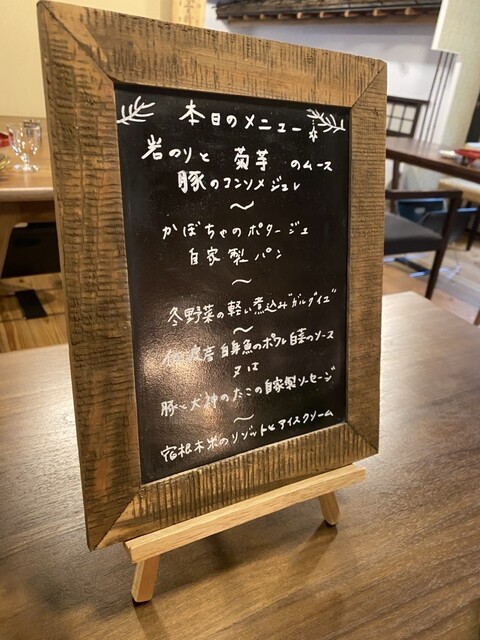 本日のメニュー
岩のりと 菊芋 のムース
豚のコンソメジュレ
～
かぼちゃのポタージュ
自家製パン
～
冬野菜の軽い煮込み"ガルグイユ"
～
白身魚のポワレ 白菜のソース
又は
豚と大神のたこの自家製ソーセージ
～
宿根木米のリゾットとアイスクリーム